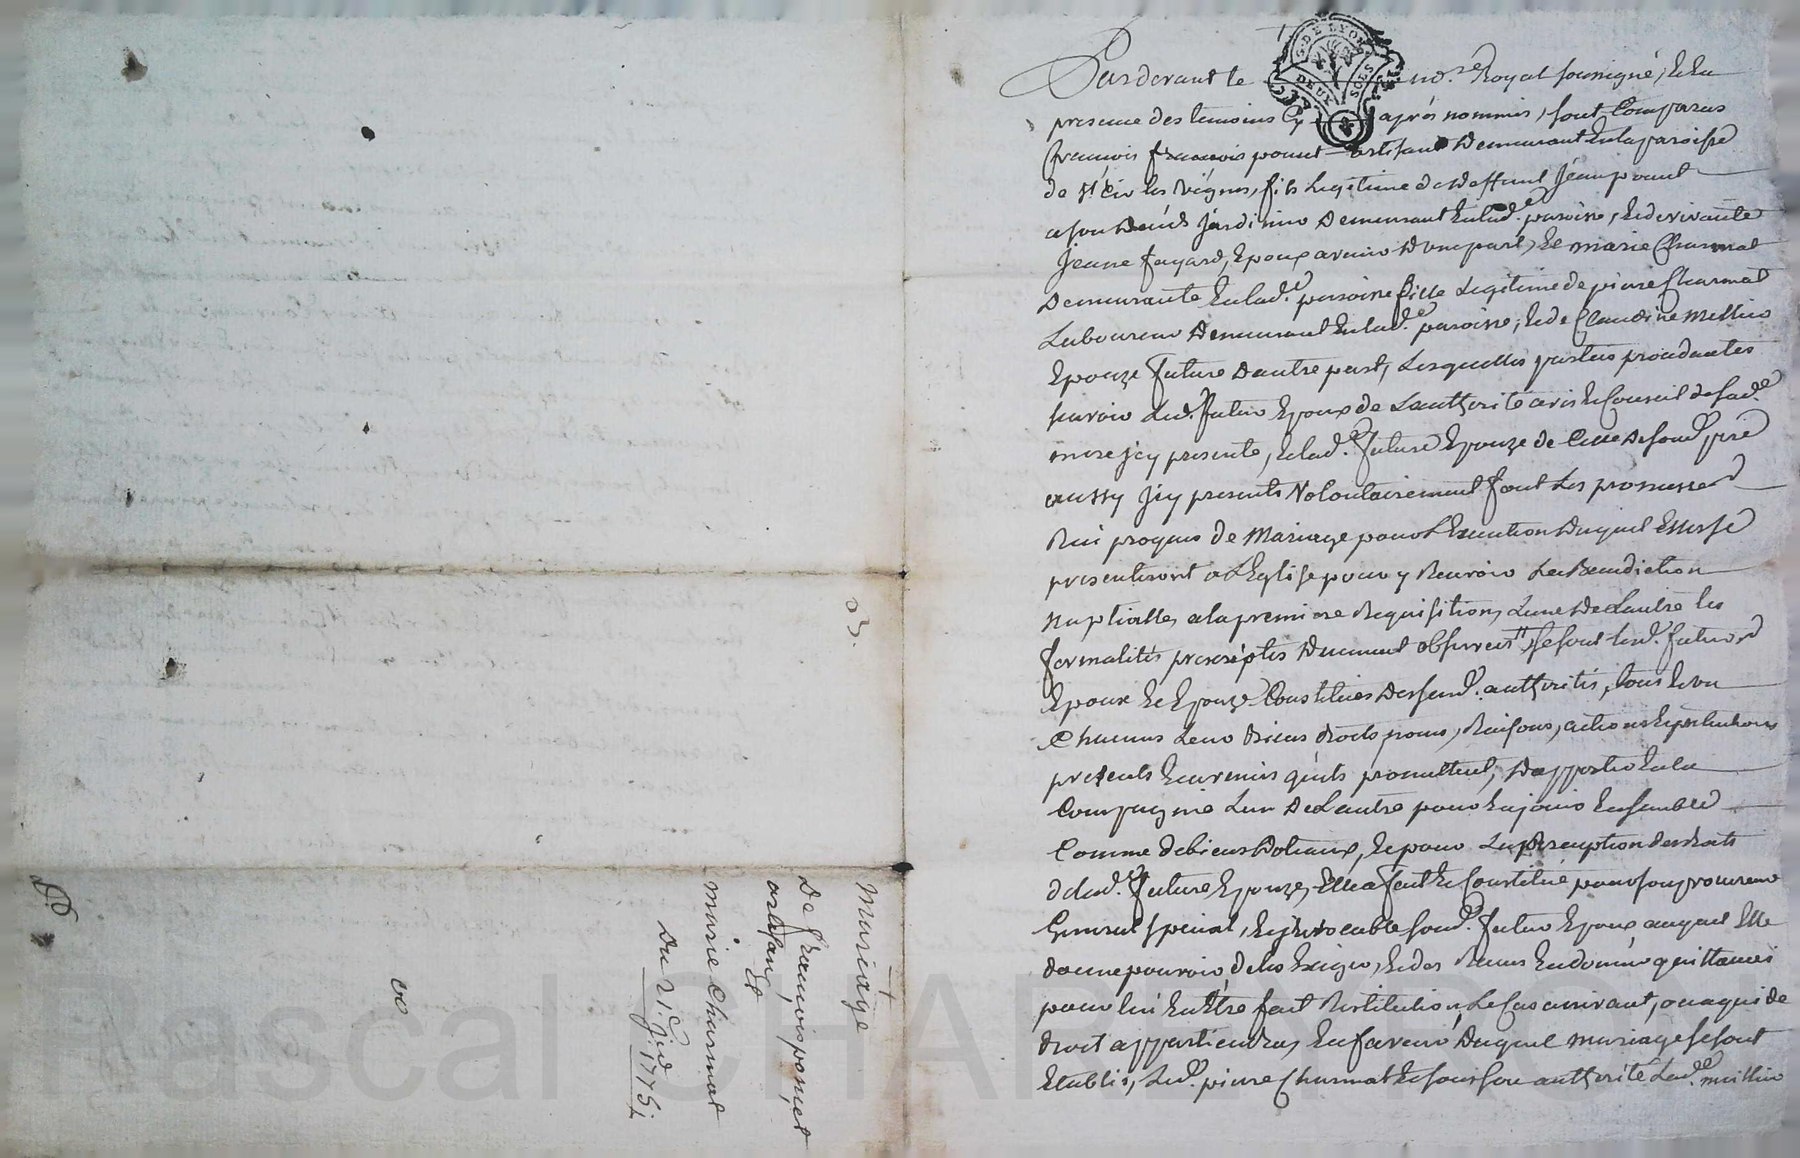 Pardevant le no.re Royal soussigné, & en
presence des temoins Cy après nommés, sont Comparus
francois francois poncet artisant Demeurant En la paroisse
de st Cir les vignes, fils Legitime de deffunt Jean poncet
a son Deceds Jardinier Demeurant En lad.e paroisse, & de vivante
Jeanne fayard, Epoux avenir D'une part, Et marie Charmat
Demeurante En lad.e paroisse fille Legitime de pierre Charmat
Laboureur Demeurant En lad.e paroisse, & de Claudine
Epouze future D'autre part, Lesquelles parties procedantes
savoir Led. futur Epoux de L'authorité avis & Conseil de sad.e
mere jcy presente, & lad.e future Epouze de Celle de sond. pere
aussy jcy present Volontairement font Les promesses
Reciproques de Mariage pour L'Execution Duquel Elles se
presenteront a L'Eglise pour y Recevoir La Benediction
Nuptialle, a la premiere Requisition, L'une De Lautre les
formalités prescriptes Duement observées, se sont lesd. futurs
Epoux & Epouze Constitués Desesd. authorités, tous & un
Chacuns Leur Biens droits noms, Raisons, actions & pretentions
presents & avenirs qu'ils promettent, D'apporter En la
Compagnie L'un De Lautre pour En jouir Ensemble
Comme de biens Dotaux, & pour La perception des droits
de lad.e future Epouze, Elle a fait & Constitué pour son procureur
General special, & jrrevocable sond. futur Epoux auquel Elle
donne pouvoir de les Exiger, & des Recus En donner quittances
pour lui En Etre fait Restitution, Le Cas arrivant, ou a qui de
droit appartiendra, En faveur Duquel mariage se sont
Etablis, Led. pierre Charmat & sous son authorité Lad.e
G. DE LYON
DEUX SOLS
Mariage
De francois poncet
artisan, &
marie Charmat
Du 21.e 1775
Pascal CHARENTRON